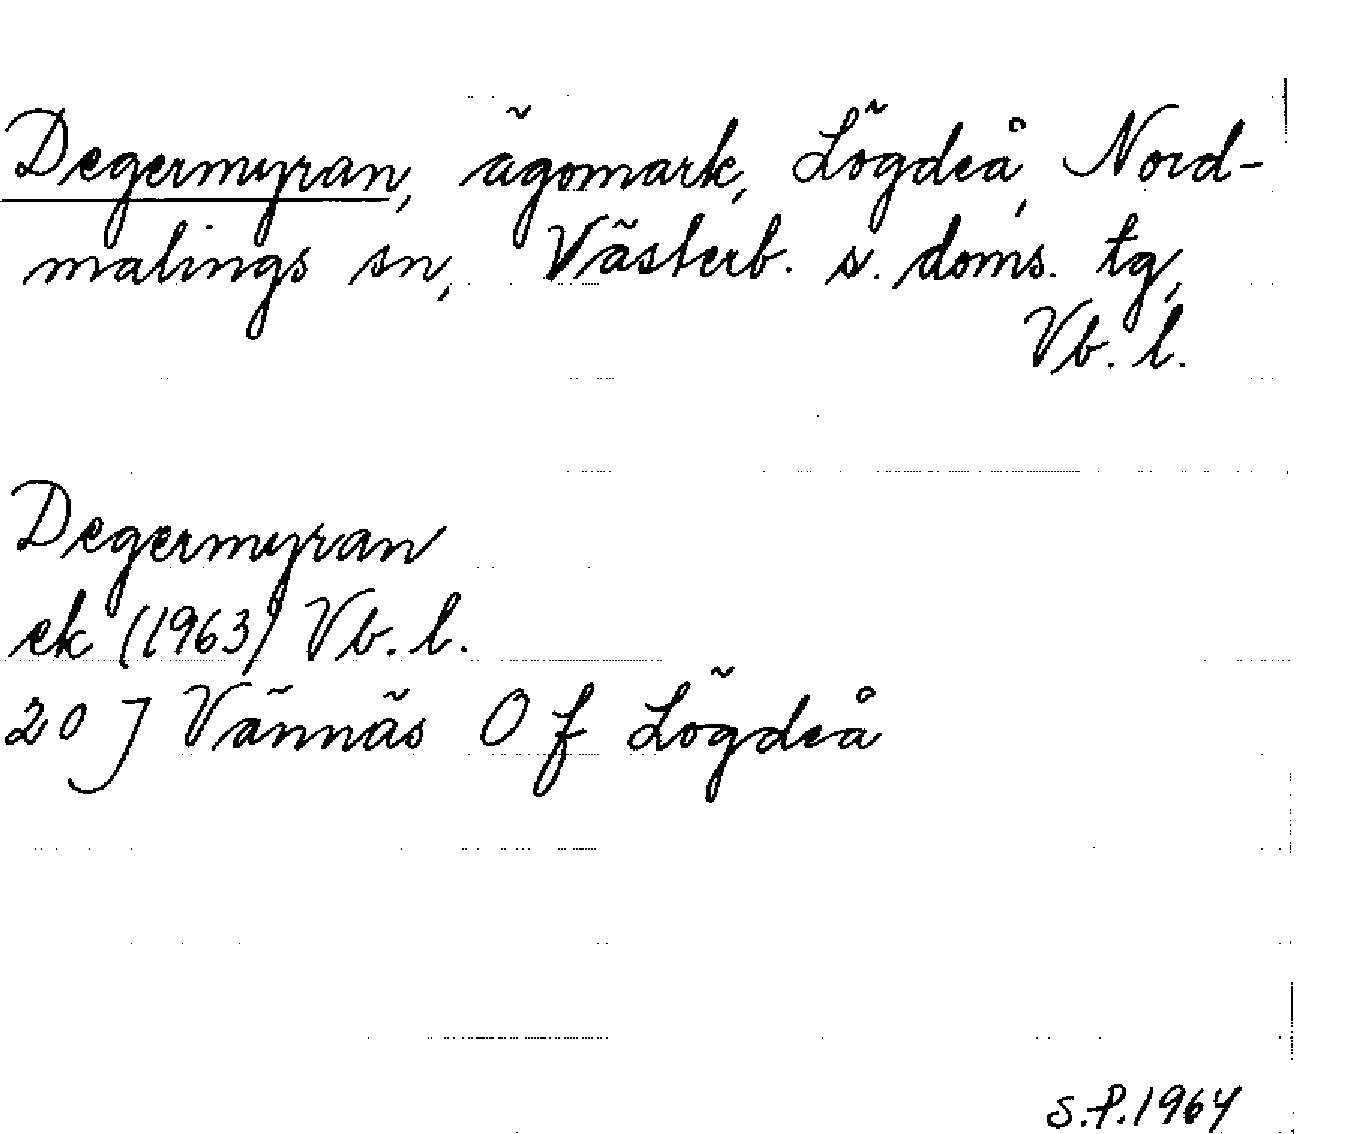 Degermyran, ägomark, Lögdeå, Nord-
malings sn, Västerb. s. doms. tg,
Vb. l.
Degermyran
ek (1963) Vb. l.
20 J Vännäs 0 f Lögdeå
S.P. 1964